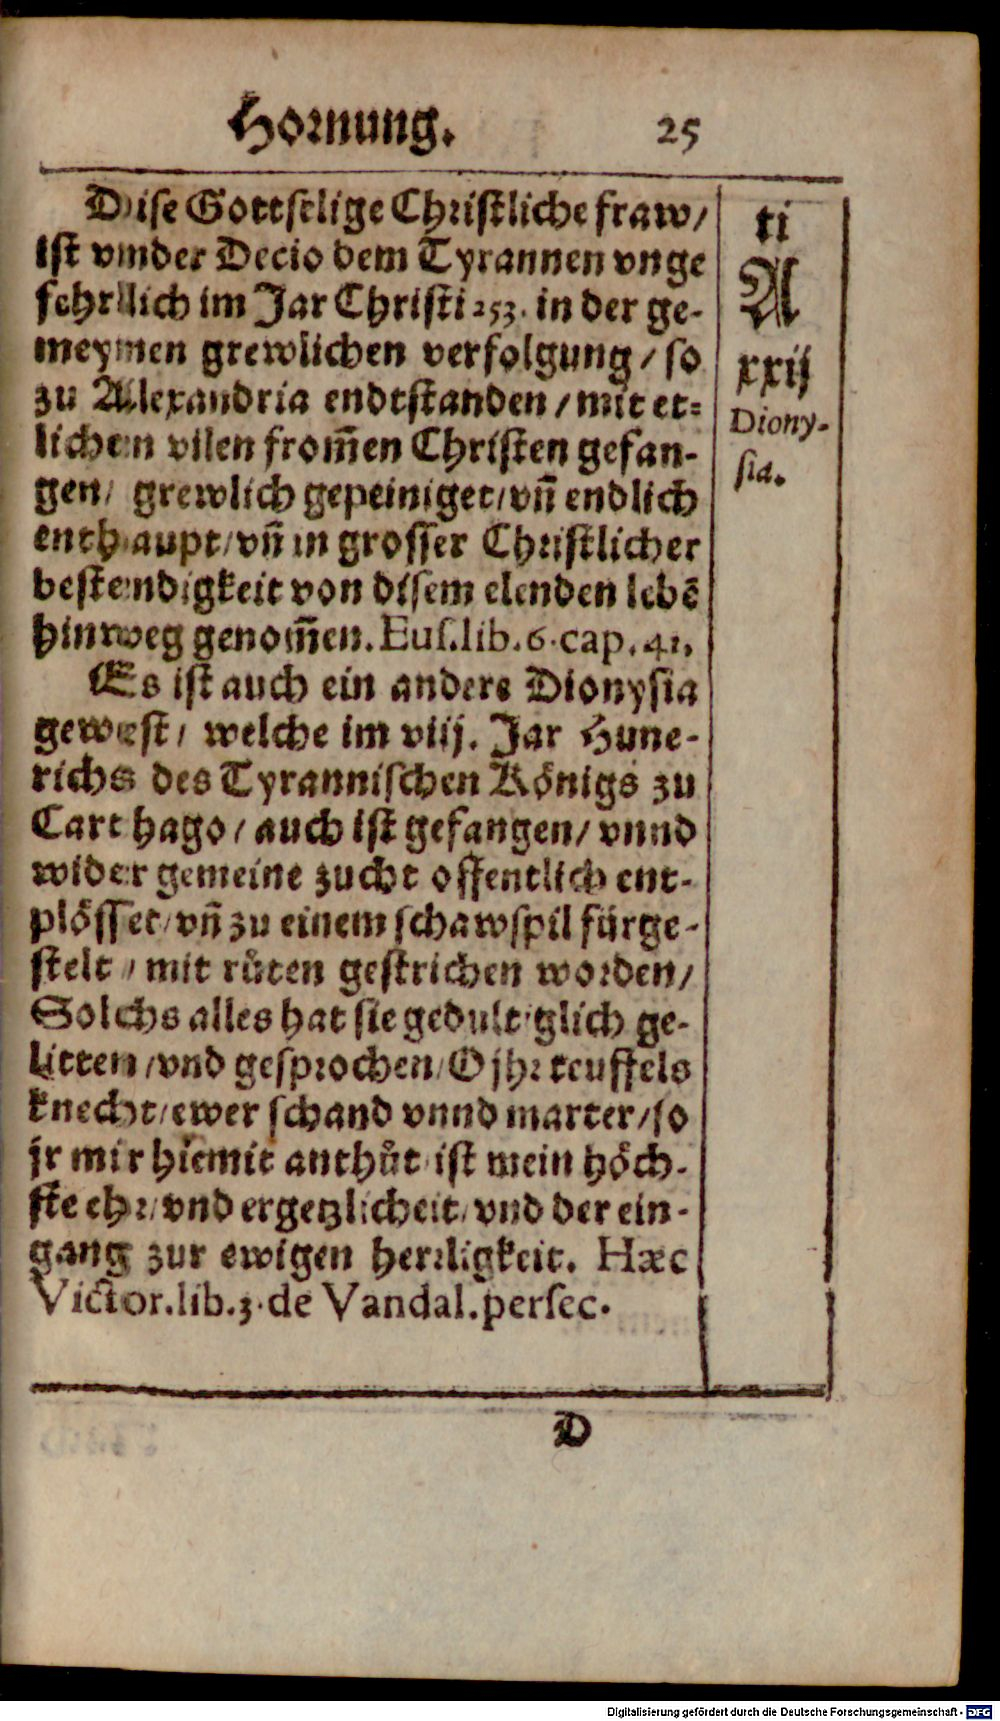 Hornung. 25
Dise Gottselige Christliche fraw/
ist vnder Decio dem Tyrannen vnge
fehrlich im Jar Christi 253. in der ge-
meynen grewlichen verfolgung / so
zu Alexandria endtstanden / mit et-
lichen vilen from̃en Christen gefan-
gen / grewlich gepeiniget / vñ endlich
enthaupt / vñ in grosser Christlicher
bestendigkeit von disem elenden lebẽ
hinweg genom̃en. Eus. lib. 6. cap. 41.
Es ist auch ein andere Dionysia
gewest / welche im viij. Jar Hune-
richs des Tyrannischen Königs zu
Carthago / auch ist gefangen / vnnd
wider gemeine zucht offentlich ent-
plösset / vñ zu einem schawspil fürge-
stelt / mit růten gestrichen worden /
Solchs alles hat sie gedultiglich ge-
litten / vnd gesprochen / O jhr teuffels
knecht / ewer schand vnnd marter / so
jr mir hiemit anthůt ist mein höch-
ste ehr / vnd ergetzlicheit / vnd der ein-
gang zur ewigen herrligkeit. Hæc
Victor. lib. 3. de Vandal. persec.
ti
A
xxij
Diony-
sia.
D
Digitalisierung gefördert durch die Deutsche Forschungsgemeinschaft - DFG